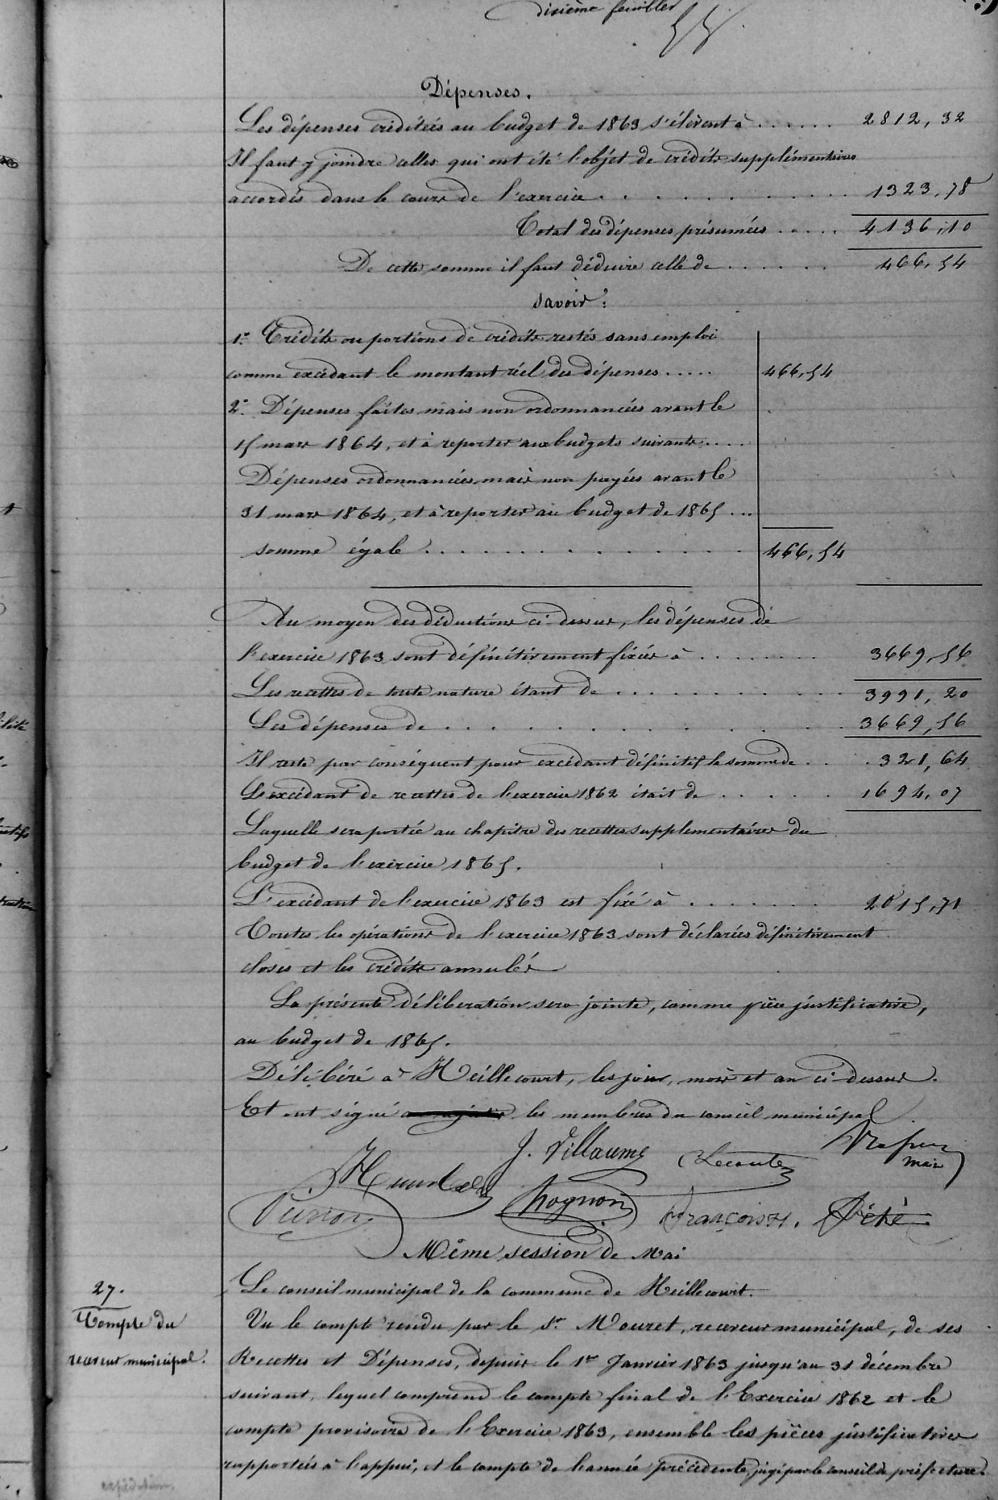 dixième feuillet
Dépenses.
Les dépenses créditées au budget de 1863 s'élèvent à ...... 2812,32
Il faut y joindre celles qui ont été l'objet de crédits supplémentaires
accordés dans le cours de l'exercice ......... 1323,78
Total des dépenses présumées ..... 4136,10
De cette somme il faut déduire celle de ...... 466,54
Savoir :
1° Crédits ou portions de crédits restés sans emploi
comme excédant le montant réel des dépenses ..... 466,54
2° Dépenses faites, mais non ordonnancées avant le
15 mars 1864, et à reporter aux budgets suivants ....
Dépenses ordonnancées, mais non payées avant le
31 mars 1864, et à reporter au budget de 1865 ...
somme égale ........... 466,54
Au moyen des déductions ci-dessus, les dépenses de
l'exercice 1863 sont définitivement fixées à ....... 3669,56
Les recettes de toute nature étant de ......... 3991,20
Les dépenses de ............ 3669,56
Il reste par conséquent pour excédant définitif la somme de ... 321,64
L'excédant de recettes de l'exercice 1862 était de ...... 1694,07
Laquelle sera portée au chapitre des recettes supplémentaires du
budget de l'exercice 1865.
L'excédant de l'exercice 1863 est fixé à ....... 2015,71
Toutes les opérations de l'exercice 1863 sont déclarées définitivement
closes et les crédits annulés
La présente délibération sera jointe, comme pièce justificative,
au budget de 1865.
Délibéré à Heillecourt, les jour, mois et an ci-dessus.
Et ont signé les membres du conseil municipal
J. Villaume Lecomte
maire
Hognon François Pété
Même session de Mai
27.
Compte du
receveur municipal.
Le conseil municipal de la commune de Heillecourt.
Vu le compte rendu par le Sr Mouret, receveur municipal, de ses
Recettes et Dépenses, depuis le 1er Janvier 1863 jusqu'au 31 décembre
suivant, lequel comprend le compte final de l'Exercice 1862 et le
compte provisoire de l'Exercice 1863, ensemble les pièces justificatives
rapportées à l'appui, et le compte de l'année précédente, jugé par le conseil de préfecture.
expédition.